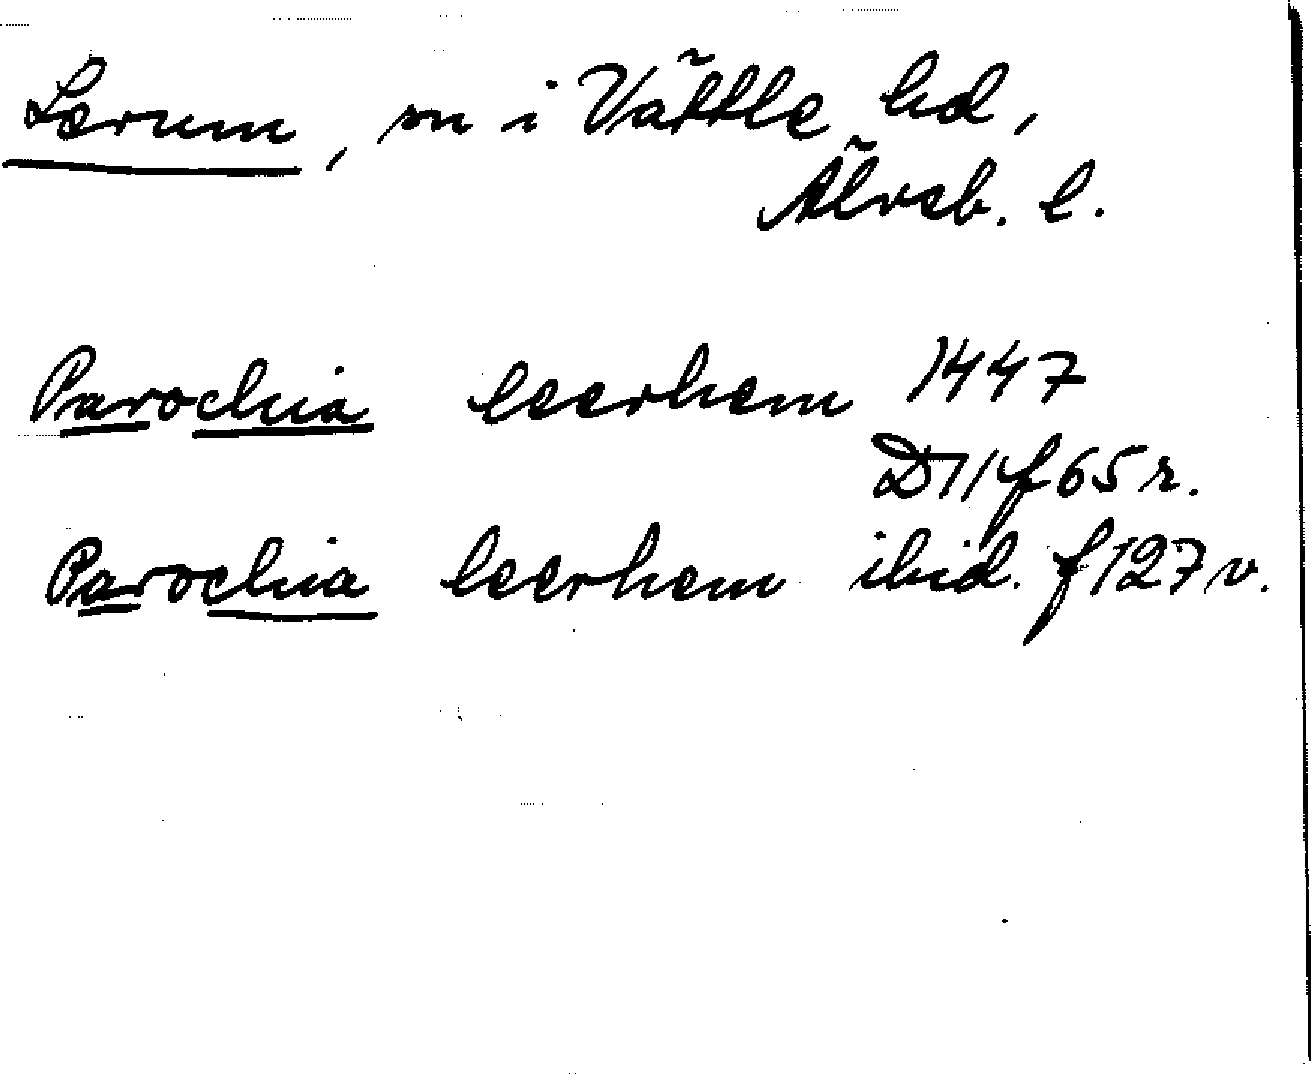 Lerum, sn i Vättle hd,
Älvsb. l.
Parochia leerhem 1447
D11 f 65 r.
Parochia leerhem ibid. f 127 v.